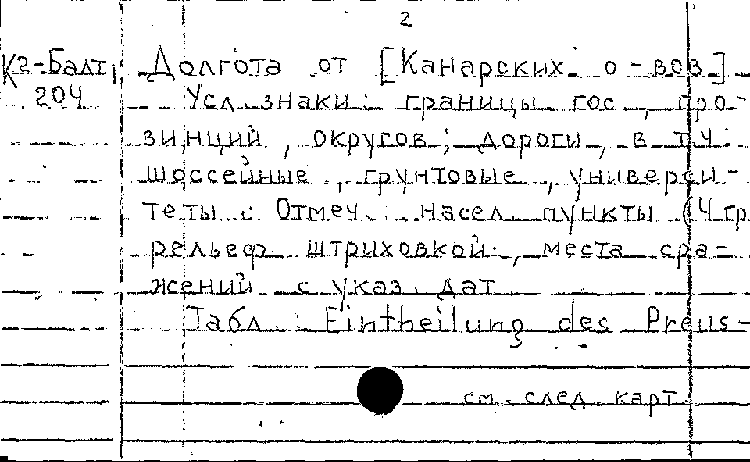 2
К2-Балт, Долгота от [Канарских о-вов]
204 Усл. знаки: границы гос., про-
винций, округов; дороги, в т.ч.
шоссейные, грунтовые, универси-
теты. Отмеч. насел. пункты (4 гр.
рельеф штриховкой, места сра-
жений с указ. дат
Табл.: Eintheilung des Preus-
см. след. карт.